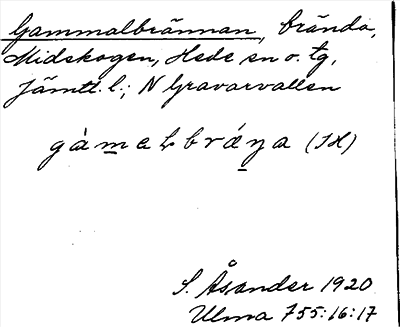 Gammalbrännan, brända,
Midskogen, Hede sn o. tg,
Jämtl. l.; N Gravarvallen
S. Åsander 1920
Ulma 755:16:17